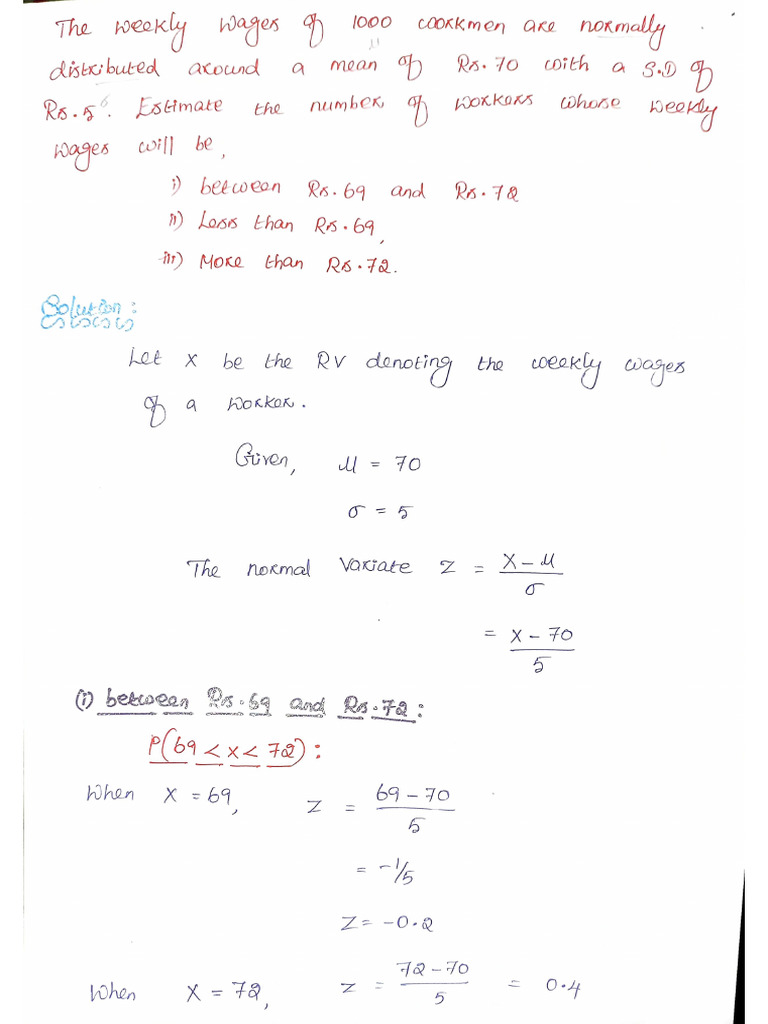 The weekly wages of 1000 workmen are normally
μ
distributed around a mean of Rs. 70 with a S.D of
Rs. 5. Estimate the number of workers whose weekly
wages will be,
i) between Rs. 69 and Rs. 72
ii) Less than Rs. 69,
iii) More than Rs. 72.
Solution:
Let x be the RV denoting the weekly wages
of a worker.
Given, μ = 70
σ = 5
The normal variate Z = X - μ / σ
= X - 70 / 5
(i) between Rs. 69 and Rs. 72:
P(69 < x < 72):
When X = 69, Z = 69 - 70 / 5
= -1/5
Z = -0.2
When X = 72, Z = 72 - 70 / 5 = 0.4